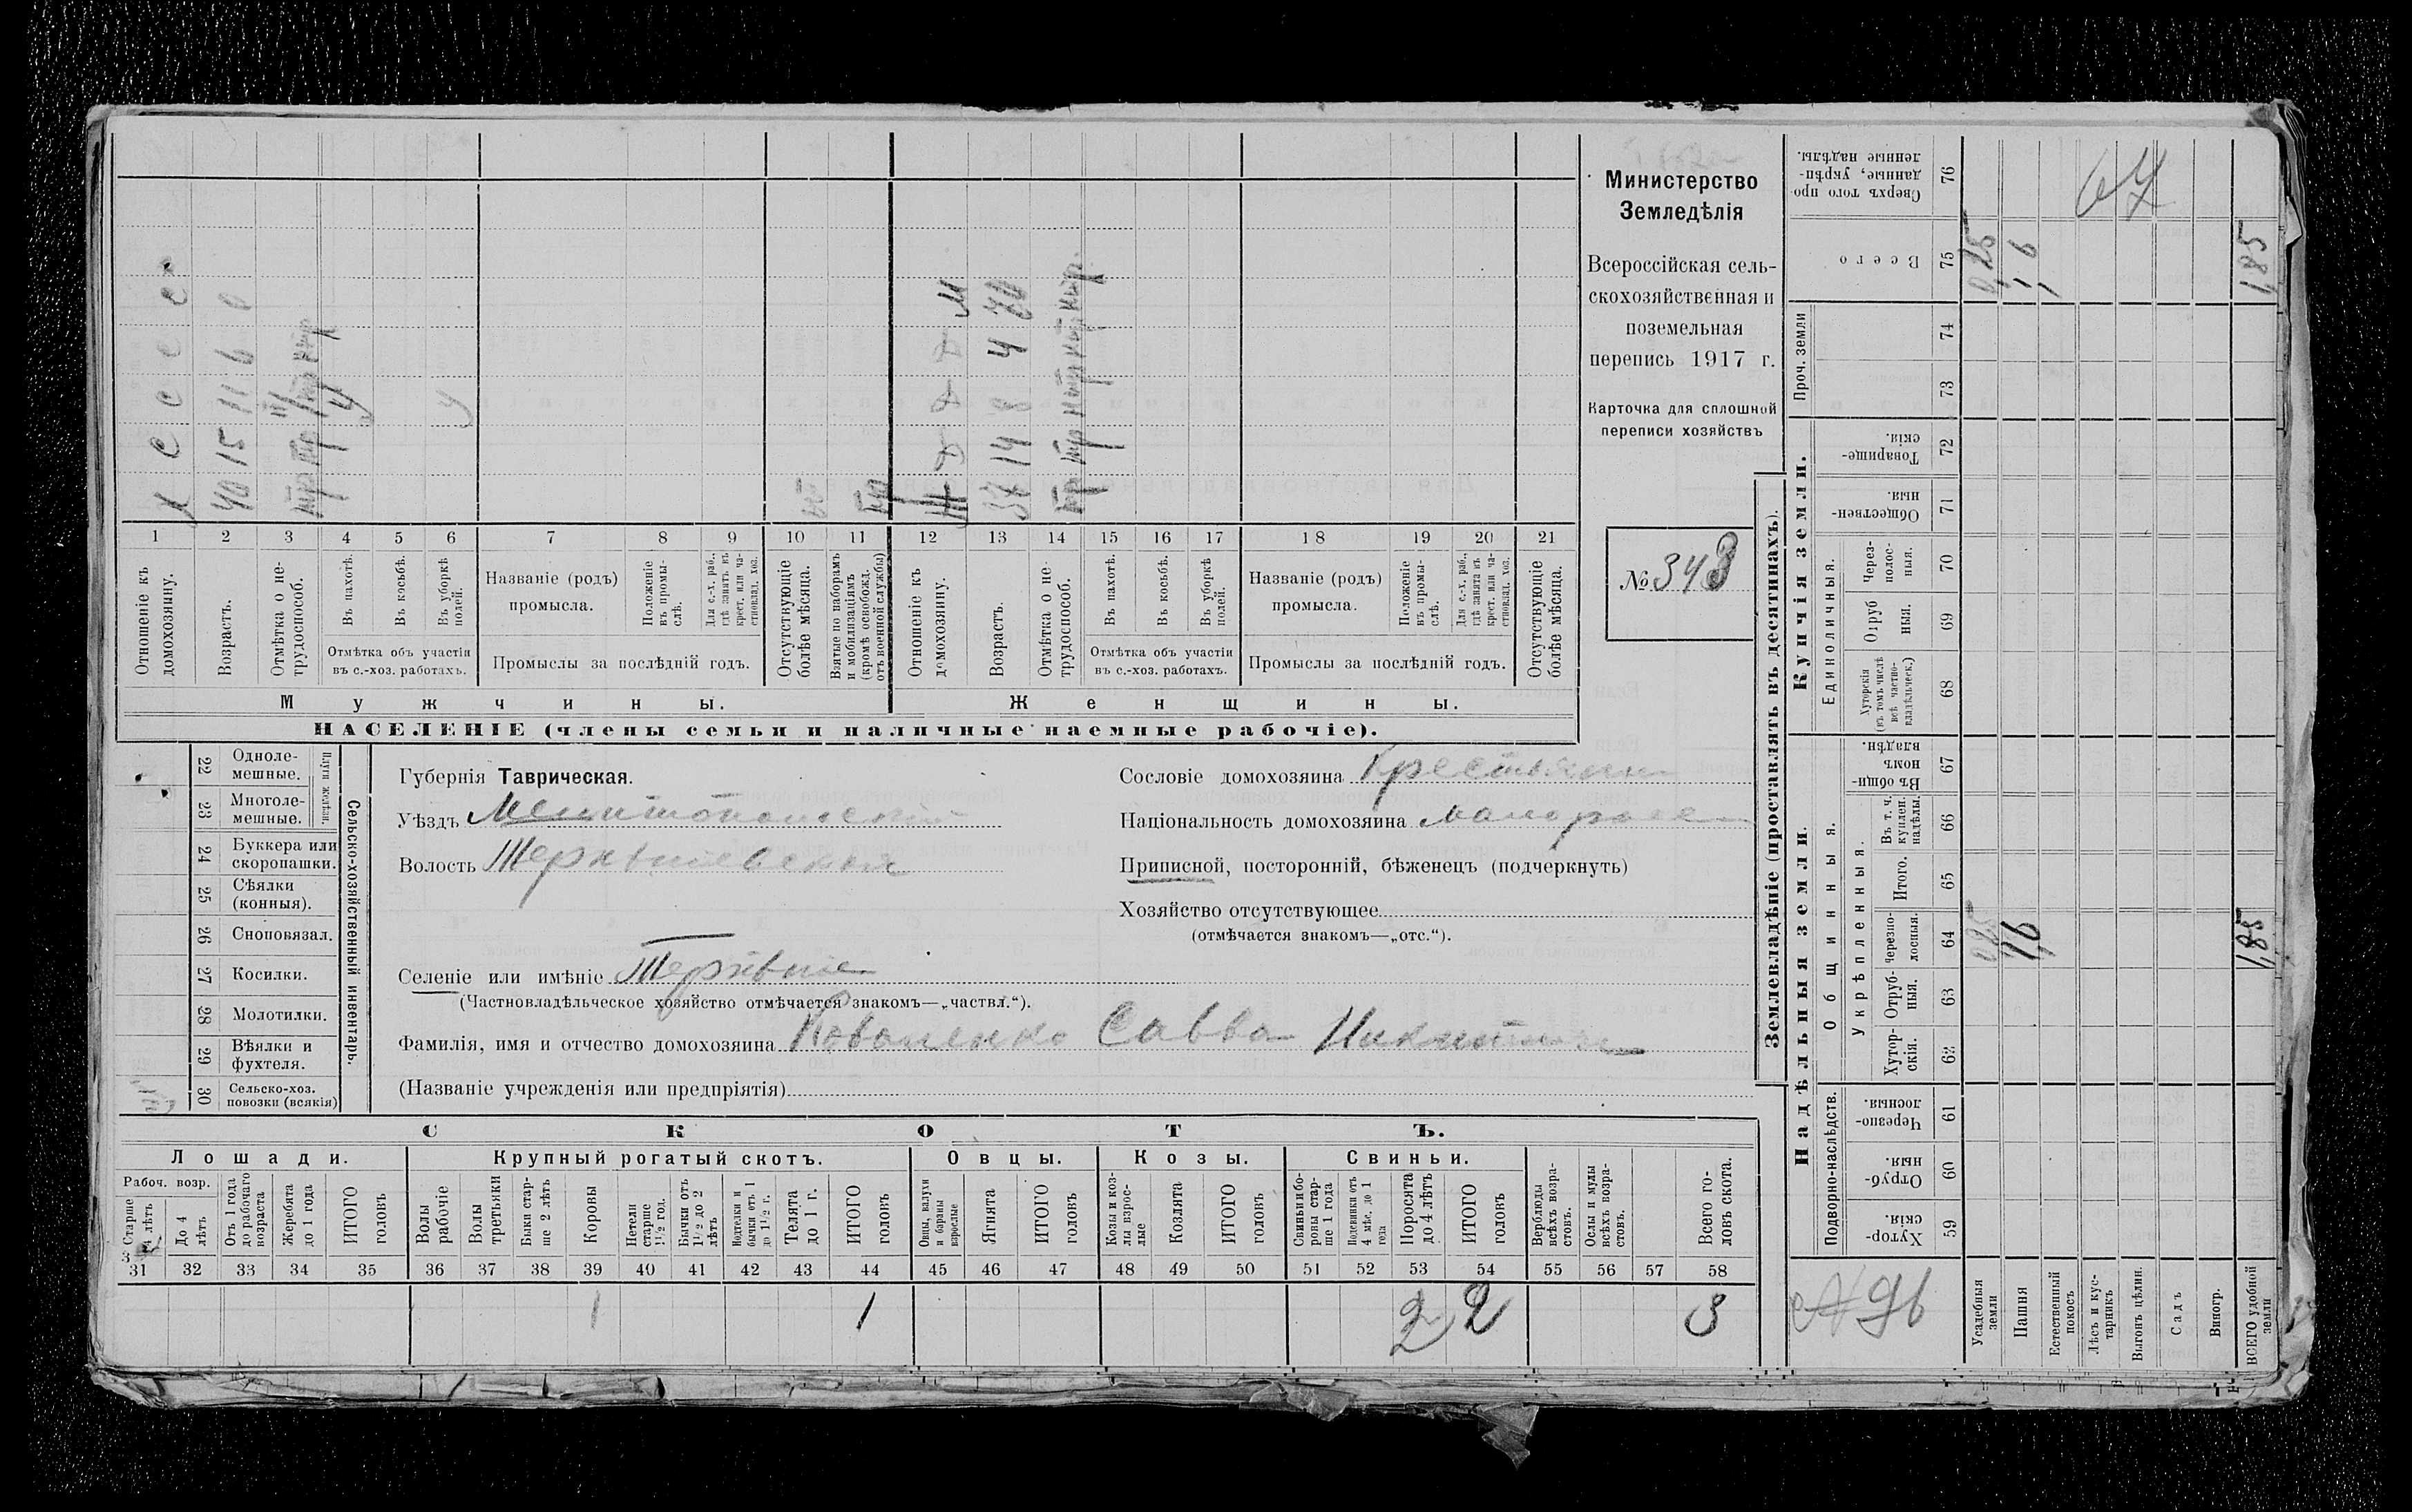 Министерство
Земледѣлія
Всероссійская сель-
скохозяйственная и
поземельная
перепись 1917 г.
Карточка для сплошной
переписи хозяйствъ
№ 343
Х С С С С
40 15 11 6 0
Ж Д Д Д М
38 14 8 4 70
1 2 3 4 5 6 7 8 9 10 11 12 13 14 15 16 17 18 19 20 21
Отношеніе къ домохозяину.
Возрастъ.
Отмѣтка о не-трудоспособ.
Въ пахотѣ.
Въ косьбѣ.
Въ уборкѣ полей.
Отмѣтка объ участіи
въ с.-хоз. работахъ.
Названіе (родъ)
промысла.
Положеніе въ промы-слѣ.
Для с.-х. раб., гдѣ занятъ въ крест. или ча-стновлад. хоз.
Промыслы за послѣдній годъ.
Отсутствующіе болѣе мѣсяца.
Взятые по наборамъ и мобилизаціямъ (кромѣ освобожд. отъ военной службы)
Отношеніе къ домохозяину.
Возрастъ.
Отмѣтка о не-трудоспособ.
Въ пахотѣ.
Въ косьбѣ.
Въ уборкѣ полей.
Отмѣтка объ участіи
въ с.-хоз. работахъ.
Названіе (родъ)
промысла.
Положеніе въ промы-слѣ.
Для с.-х. раб., гдѣ занята въ крест. или ча-стновлад. хоз.
Промыслы за послѣдній годъ.
Отсутствующіе болѣе мѣсяца.
Мужчины. Женщины.
НАСЕЛЕНІЕ (члены семьи и наличные наемные рабочіе).
22 Одноле-мешные.
23 Многоле-мешные.
24 Буккера или скоропашки.
25 Сѣялки (конныя).
26 Сноповязал.
27 Косилки.
28 Молотилки.
29 Вѣялки и фухтеля.
30 Сельско-хоз. повозки (всякія)
Сельско-хозяйственный инвентарь.
Губернія Таврическая.
Уѣздъ Мелитопольский
Волость
Селеніе или имѣніе
(Частновладѣльческое хозяйство отмѣчается знакомъ—„частвл.“).
Фамилія, имя и отчество домохозяина Коваленко Савва Никитич
(Названіе учрежденія или предпріятія)
Сословіе домохозяина Крестьянин
Національность домохозяина малоросс
Приписной, посторонній, бѣженецъ (подчеркнуть)
Хозяйство отсутствующее
(отмѣчается знакомъ—„отс.“).
СКОТЪ.
Лошади. Крупный рогатый скотъ. Овцы. Козы. Свиньи.
Рабоч. возр.
Старше 4 лѣтъ
До 4 лѣтъ
Отъ 1 года до рабочаго возраста
Жеребята до 1 года
ИТОГО головъ
Волы рабочіе
Волы третьяки
Быки стар-ше 2 лѣтъ
Коровы
Нетели старше 1½ год.
Бычки отъ 1½ до 2 лѣтъ
бычки отъ 1 до 1½ г.
Телята до 1 г.
ИТОГО головъ
Овцы, валухи и бараны взрослые
Ягнята
ИТОГО головъ
Козы и коз-лы взрос-лые
Козлята
ИТОГО головъ
Свиньи и бо-ровы стар-ше 1 года
Подсвинки отъ 4 мѣс. до 1 года
Поросята до 4 лѣтъ
ИТОГО головъ
Верблюды всѣхъ возра-стовъ.
Ослы и мулы всѣхъ возра-стовъ.
Всего го-ловъ скота.
31 32 33 34 35 36 37 38 39 40 41 42 43 44 45 46 47 48 49 50 51 52 53 54 55 56 57 58
1 1 2 2 3
Землевладѣніе (проставлять въ десятинахъ).
Надѣльныя земли. Купчія земли. Проч. земли
Подворно-наслѣдств.
Общинныя.
Укрѣпленныя.
Единоличныя.
Хутор-скія. 59
Отруб-ныя. 60
Черезпо-лосныя. 61
Хутор-скія. 62
Отруб-ныя. 63
Черезпо-лосныя. 64
Итого. 65
Въ т. ч. куплен. надѣлы. 66
Въ общин-номъ владѣн. 67
Хуторскія (въ томъ числѣ всѣ частно-владѣльческ.) 68
Отруб ныя. 69
Через-полос-ныя. 70
Обществен-ныя. 71
Товарище-скія. 72
73
74
Всего 75
Сверхъ того про-данные, укрѣп-ленные надѣлы. 76
Усадебныя земли
Пашня
Естественный покосъ
Лѣсъ и кус-тарникъ
Выгонъ цѣлин.
Садъ
Виногр.
ВСЕГО удобной земли
0,25 1,6 1,85
0,25 1,6 1,85
67